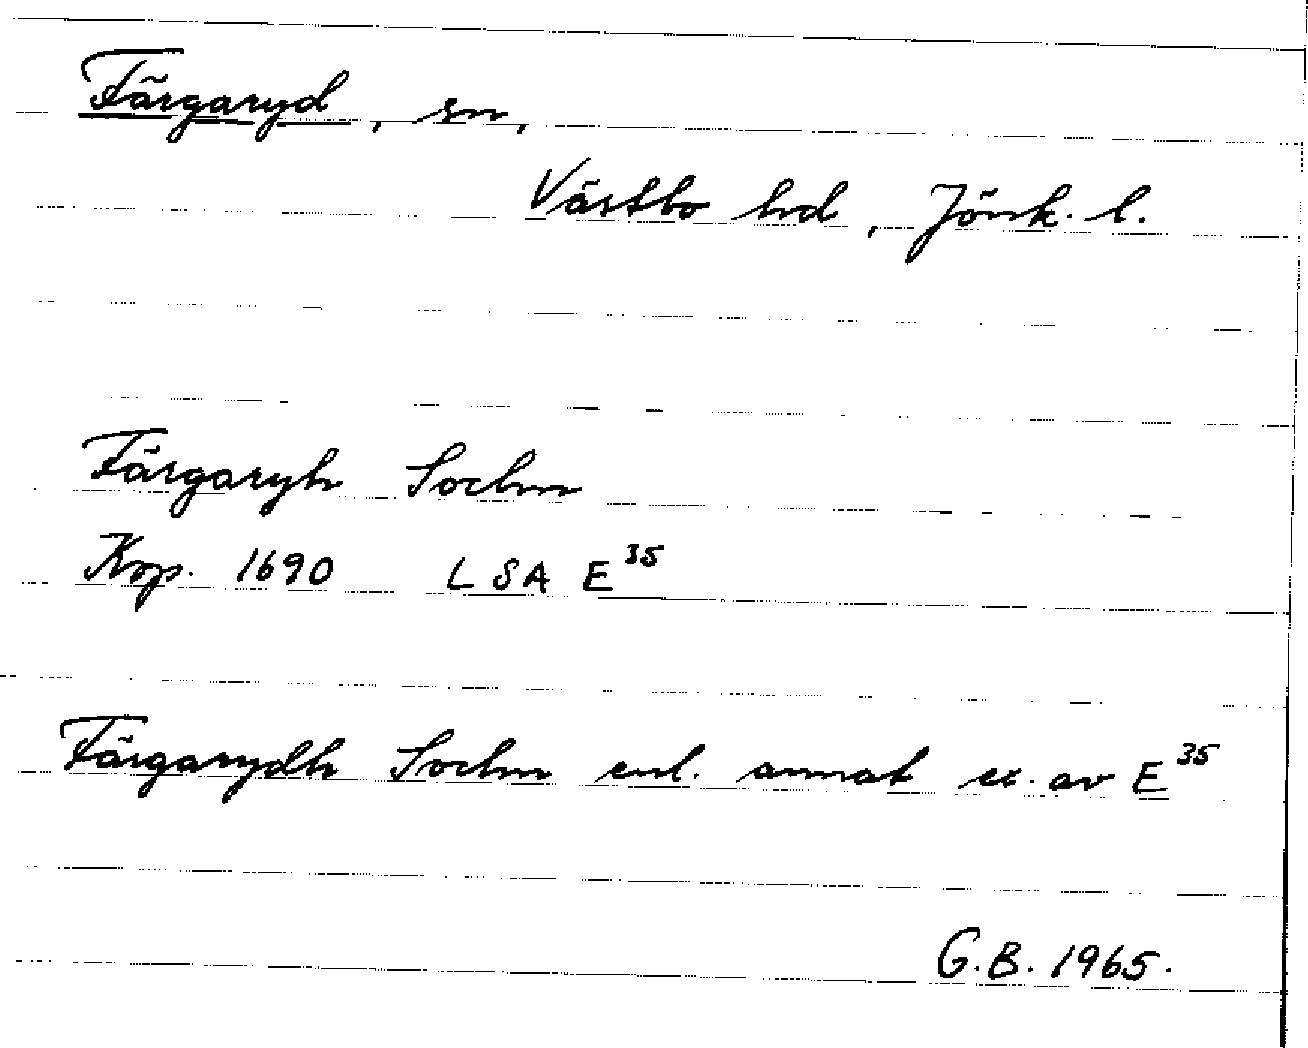 Färgaryd, sn,
Västbo hd, Jönk. l.
Färgaryh Sochn
Kop. 1690 LSA E 35
Färgarydh Sochn enl. annat ex. av E 35
G.B. 1965.